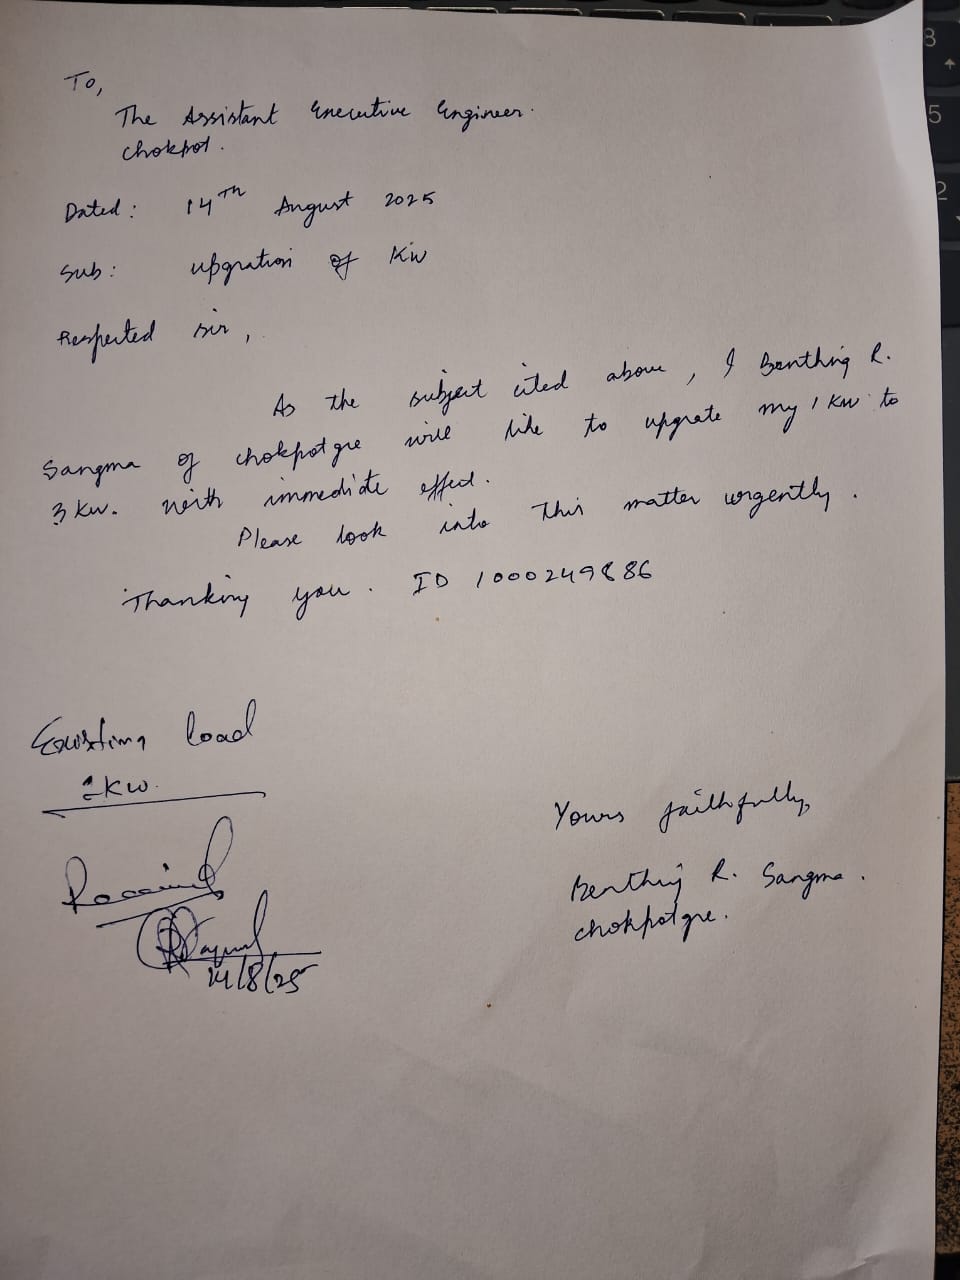 To,
The Assistant Executive Engineer.
Chokpot.
Dated: 14th August 2025
Sub: upgration of KW
Respected sir,
As the subject cited above, I Benthing R.
Sangma of chokpotgre will like to upgrate my 1 KW to
3 KW. with immediate effect.
Please look into this matter urgently.
Thanking you. ID 1000249886
Existing load
1KW.
Received
14/8/25
Yours faithfully,
Benthing R. Sangma.
chokpotgre.